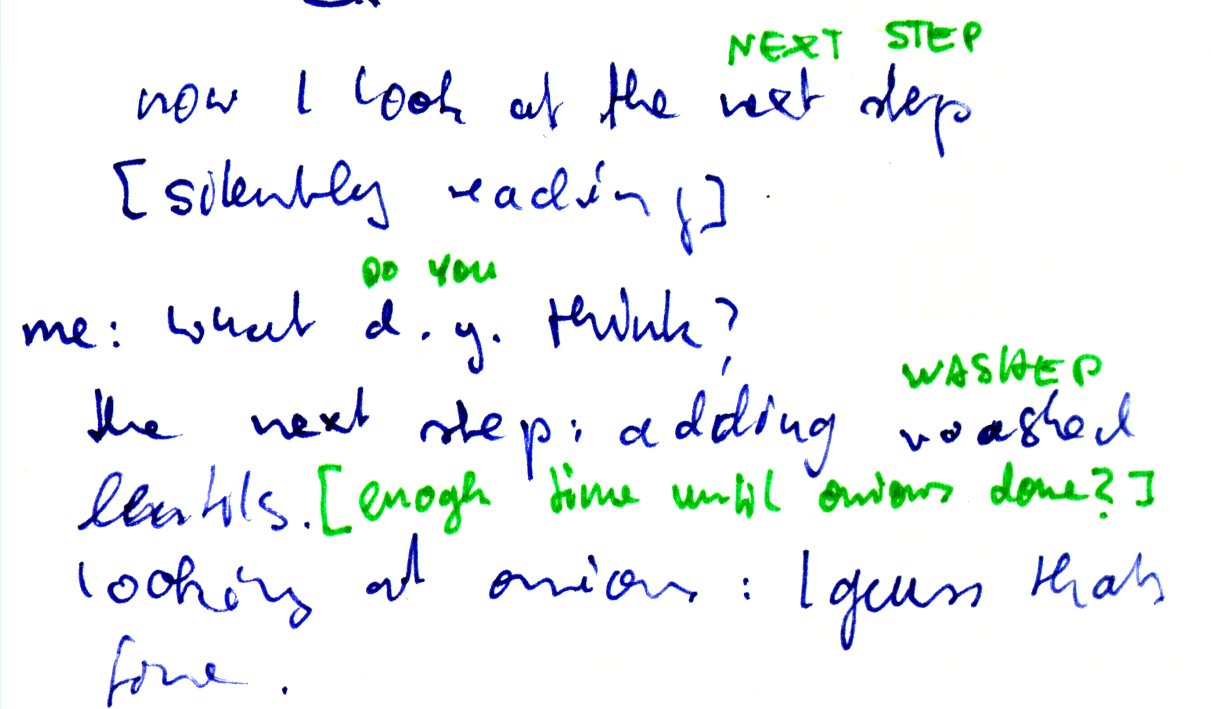 NEXT STEP
now I look at the next step
[silently reading]
DO YOU
me: what d.y. think?
WASHED
the next step: adding washed
lentils. [enogh time until onions done?]
looking at onions: I guess thats
fine.